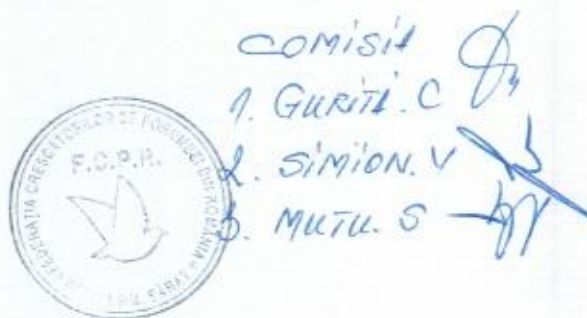 COMISIA
1. GURITĂ. C
2. SIMION. V
3. MUTU. S
FEDERATIA CRESCATORILOR DE PORUMBEI DIN ROMANIA
F.C.P.R.